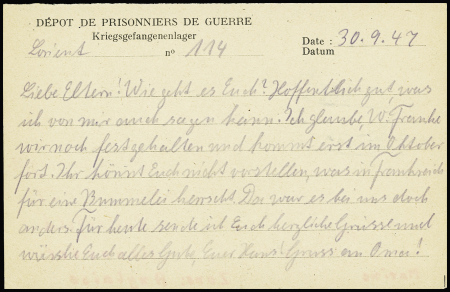 DÉPOT DE PRISONNIERS DE GUERRE
Kriegsgefangenenlager
Lorient nº 114
Date : 30.9.47
Datum
Liebe Eltern! Wie geht es Euch? Hoffentlich gut, was
ich von mir auch sagen kann. Ich glaube, W. Franke
wir noch festgehalten und kommt erst im Oktober
fort. Ihr könnt Euch nicht vorstellen, was in Frankreich
für eine Bummelei herrscht. Da war es bei uns doch
anders. Für heute sende ich Euch herzliche Grüsse und
wünsche Euch alles Gute, Euer Hans! Gruss an Oma!